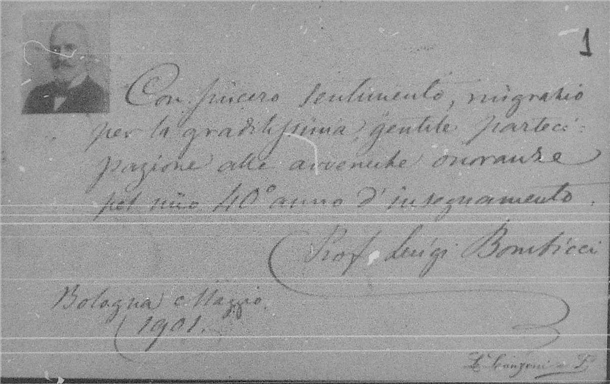 1
Con sincero sentimento, ringrazio
per la graditissima, gentile parteci=
pazione alle avvenute onoranze
pel mio 40° anno d'insegnamento.
Prof. Luigi Bombicci
Bologna e Maggio
1901.